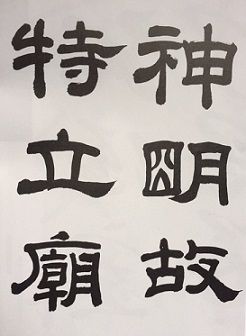 神明故
特立廟